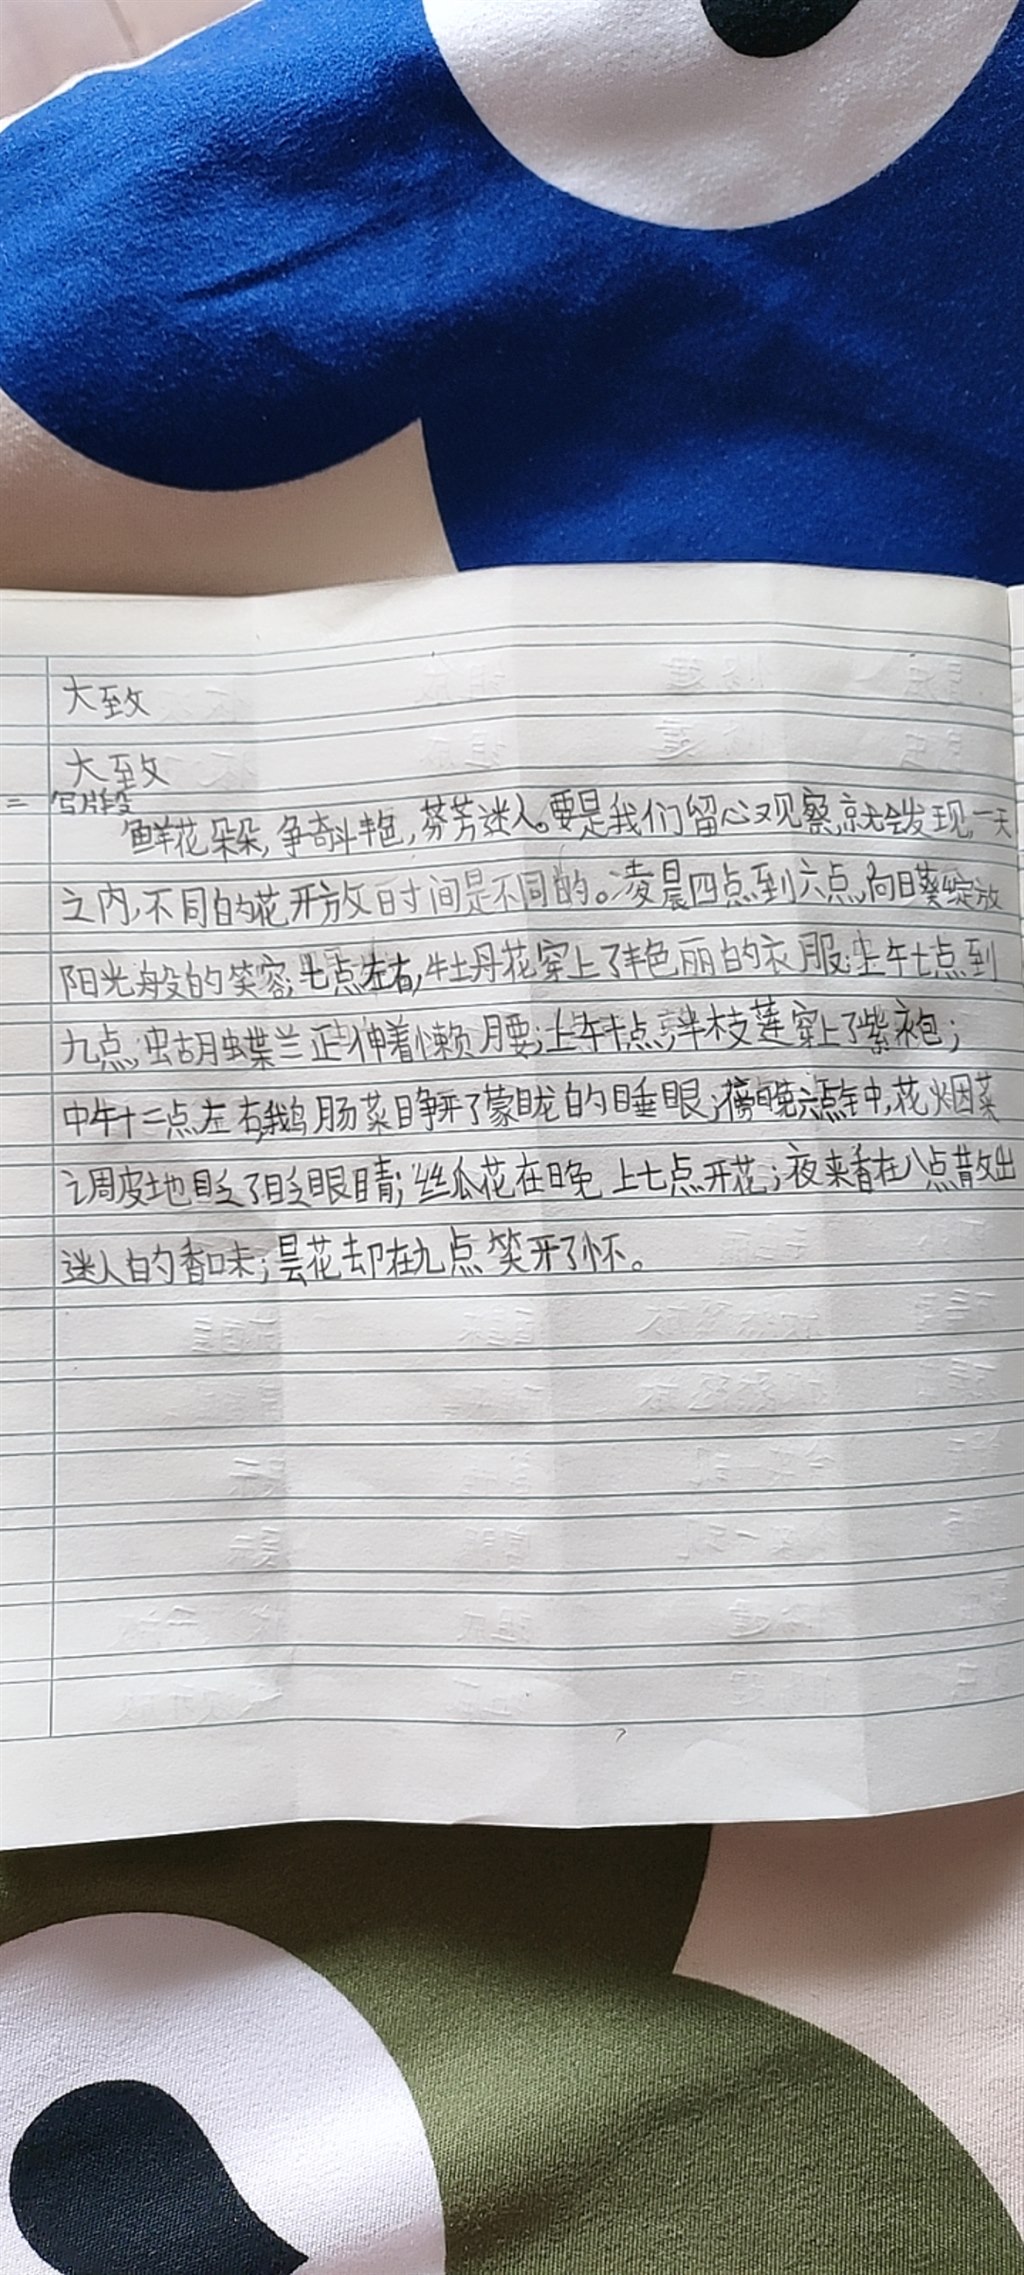 大致
大致
二 写片段
鲜花朵朵,争奇斗艳,芬芳迷人。要是我们留心观察,就会发现,一天
之内,不同的花开放时间是不同的。凌晨四点到六点,向日葵绽放
阳光般的笑容;七点左右,牡丹花穿上了艳丽的衣服;上午七点到
九点,蝴蝶兰正伸着懒腰;上午十点,半枝莲穿上了紫衣包;
中午十二点左右,鹅肠菜睁开了蒙眬的睡眼;傍晚六点钟,花烟菜
调皮地眨了眨眼睛;丝瓜花在晚上七点开花;夜来香在八点散出
迷人的香味;昙花却在九点笑开了怀。